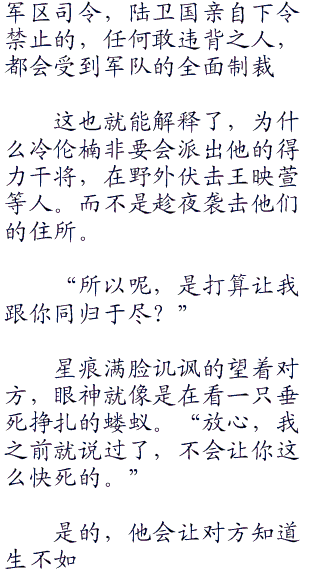 军区司令，陆卫国亲自下令
禁止的，任何敢违背之人，
都会受到军队的全面制裁
这也就能解释了，为什
么冷伦楠非要会派出他的得
力干将，在野外伏击王映萱
等人。而不是趁夜袭击他们
的住所。
“所以呢，是打算让我
跟你同归于尽？”
星痕满脸讥讽的望着对
方，眼神就像是在看一只垂
死挣扎的蝼蚁。“放心，我
之前就说过了，不会让你这
么快死的。”
是的，他会让对方知道
生不如